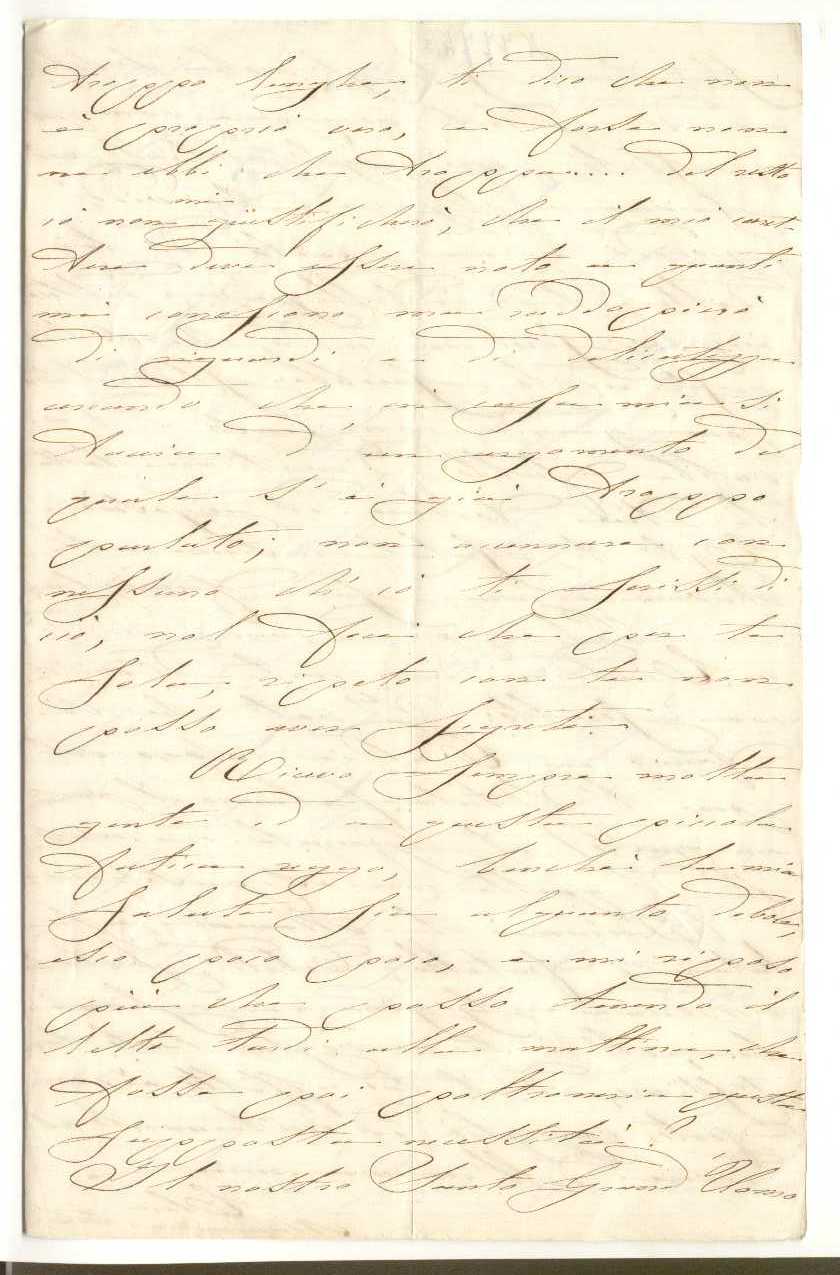 troppo lunghe, ti dico che non
è proprio vero, e forse non
ne ebbi che troppe.... Del resto
mi
io non giustificherò, che il mio carat-
tere deve essere noto a quanti
mi conoscono ma raddoppierò
di riguardi e di delicatezza
amando che, in casa mia si
taccia d' un argomento del
quale s' è già troppo
parlato; non accennare con
nessuno ch' io ti scrissi di
ciò, nol feci che per te
sola, ripeto con te non
posso aver segreti.
Ricevo sempre molta
gente ed a questa piccola
fatica reggo, benchè la mia
salute sia alquanto debole,
esco poco poco, e mi riposo
più che posso tenendo il
letto tardi alla mattina, che
fosse poi poltroneria questa
supposta necessità?
Il nostro Santo Grand' Uomo